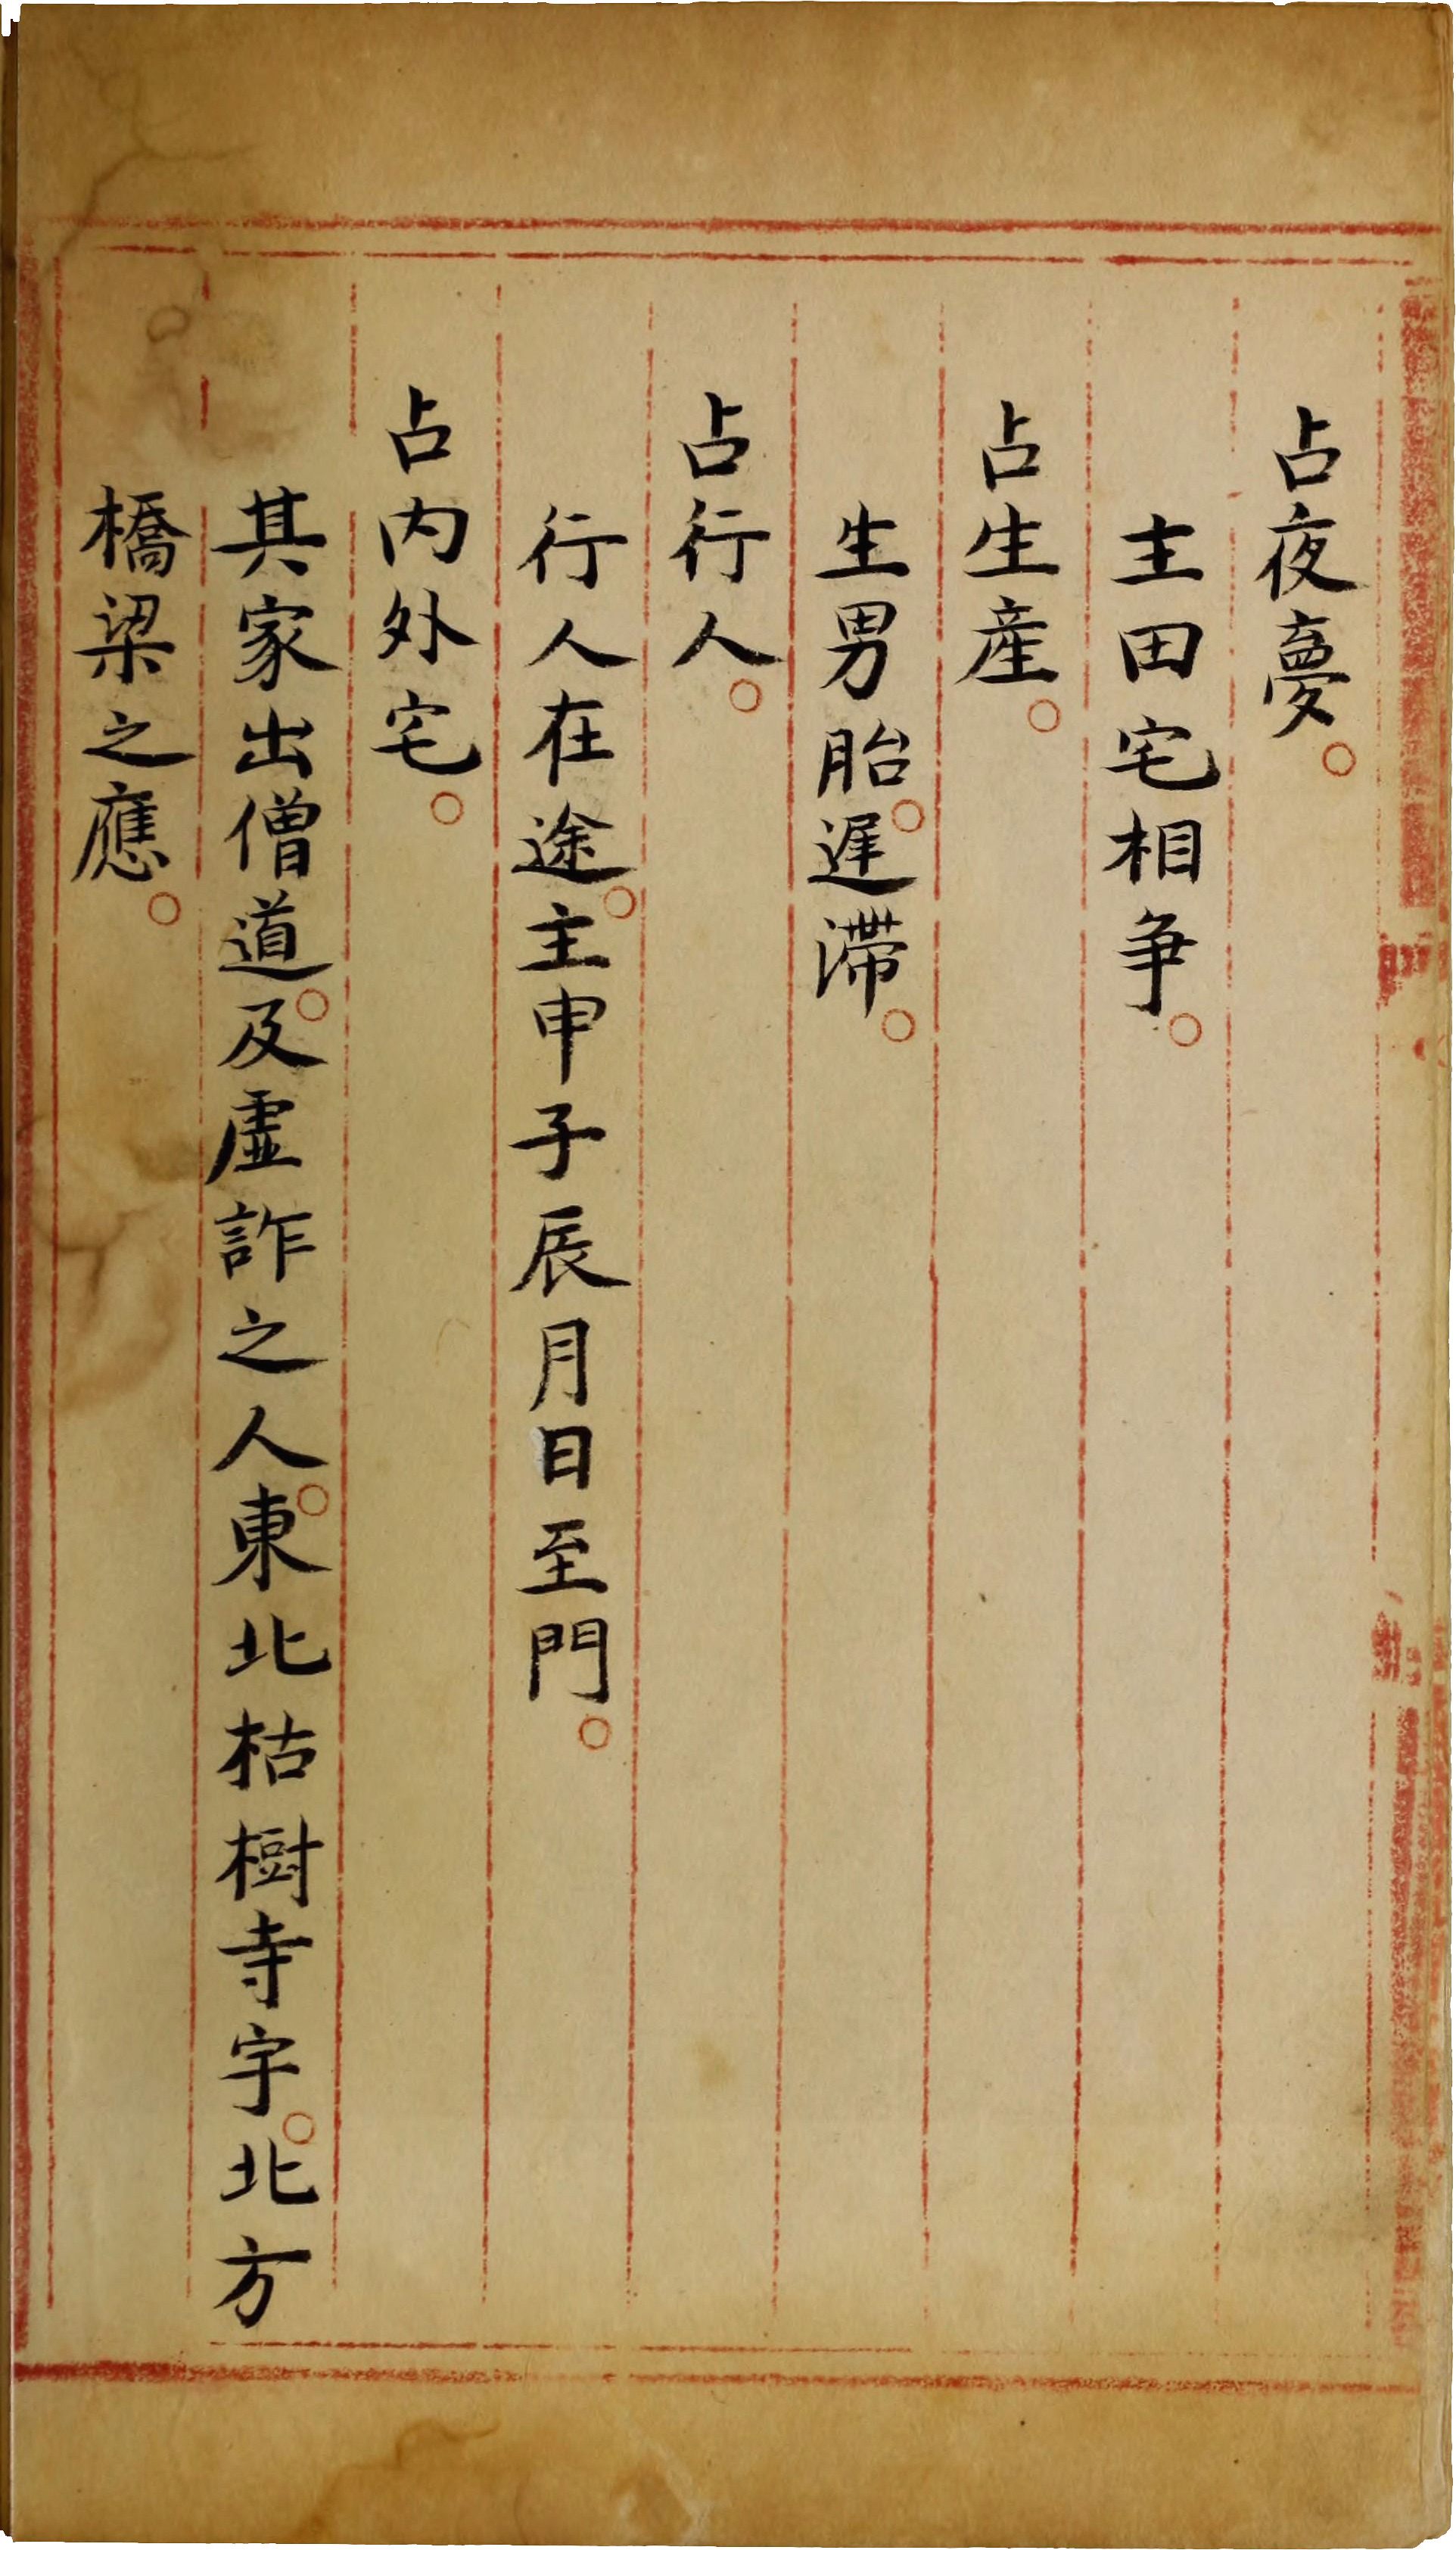 占夜夢。
主田宅相争。
占生産。
生男胎。遅滯。
占行人。
行人在途。主申子辰月日至門。
占内外宅。
其家出僧道。及虛詐之人。東北枯樹寺宇。北方
橋梁之應。